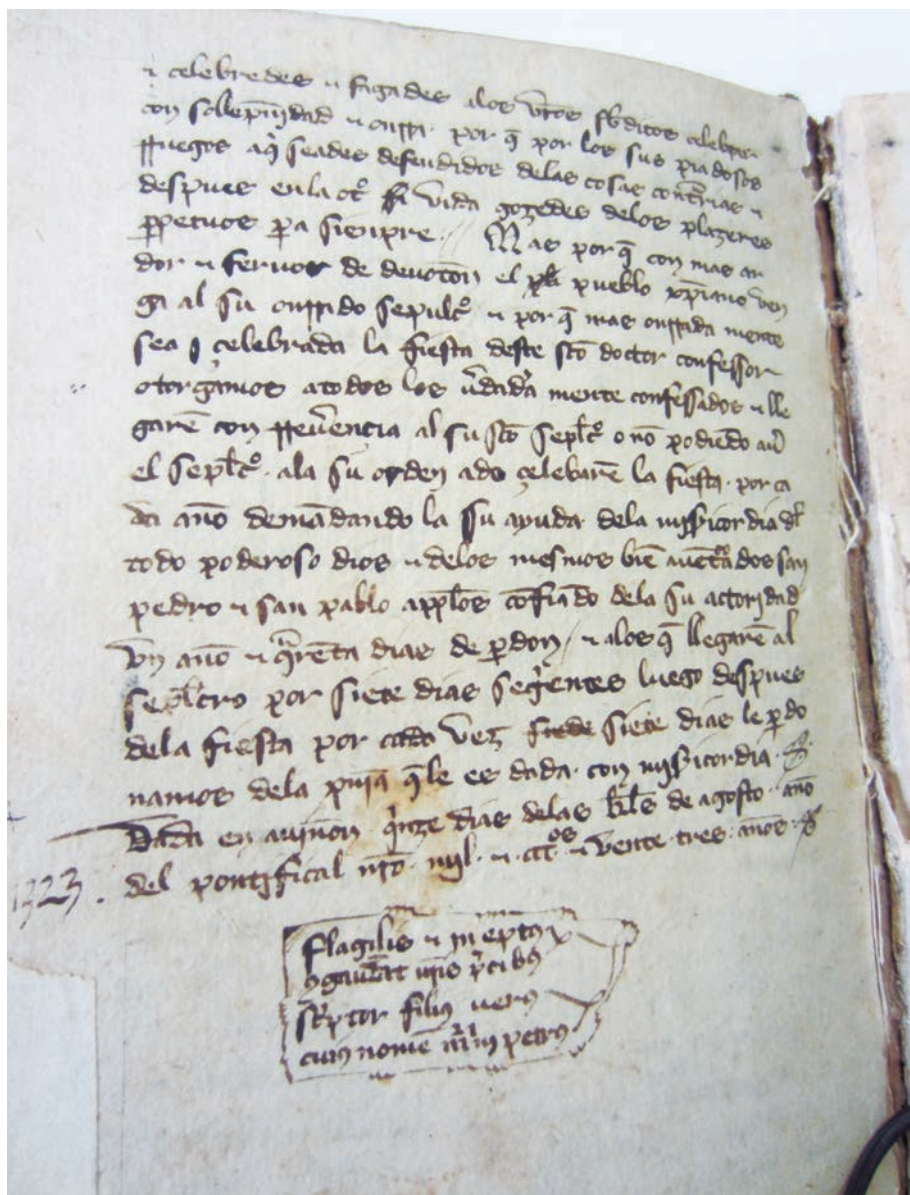 τ celebredes τ fagades alos vr̃os subditos celebrar
con solẽpnidad τ onrra. por q̃ por los sus piadosos
rruegos aq̃ seades defendidos delas cosas contrarias τ
despues enla vida gozedes delos plazeres
ꝑpetuos ꝑa sienpre. Mas por q̃ con mas ar
dor τ feruor de deuoçon el pueblo xp̃iano ven
ga al su onrrado sepulcº. τ por q̃ mas onrrada mente
sea çelebrada la fiesta deste sc̃o doctor confessor
otorgamos atodos los ũdadã mente confessados τ lle
garẽ con rreuẽnçia al su sc̃o sepl̃cº o nõ podiẽdo
el sepl̃cº. ala su orden ado çelebrarẽ la fiesta. por ca
da año demãdando la su ayuda dela mis̃icordia dl̃
todo poderoso dios τ delos mesmos biẽ auẽtados san
pedro τ san pablo appl̃os cõfiãdo dela su actoridad
vn año τ q̃rẽta dias de ꝑdon, τ alos q̃ llegarẽ al
sepl̃cro por siete dias seg̃entes luego despues
dela fiesta por cada vez siete dias le ꝑdo
namos dela pñia q̃le es dada. con mis̃icordia.
Dada en auiñon q̃nze dias delas kl̃s de agosto. año
del pontifical nr̃o. mil. τ ccc.ºs τ vente. tres. años.
1323.
fflagilis τ in eptus
ꝯgaudeat ur̃is p̃cibus
sc̃ptor filius uerus
cuius nomẽ petrus